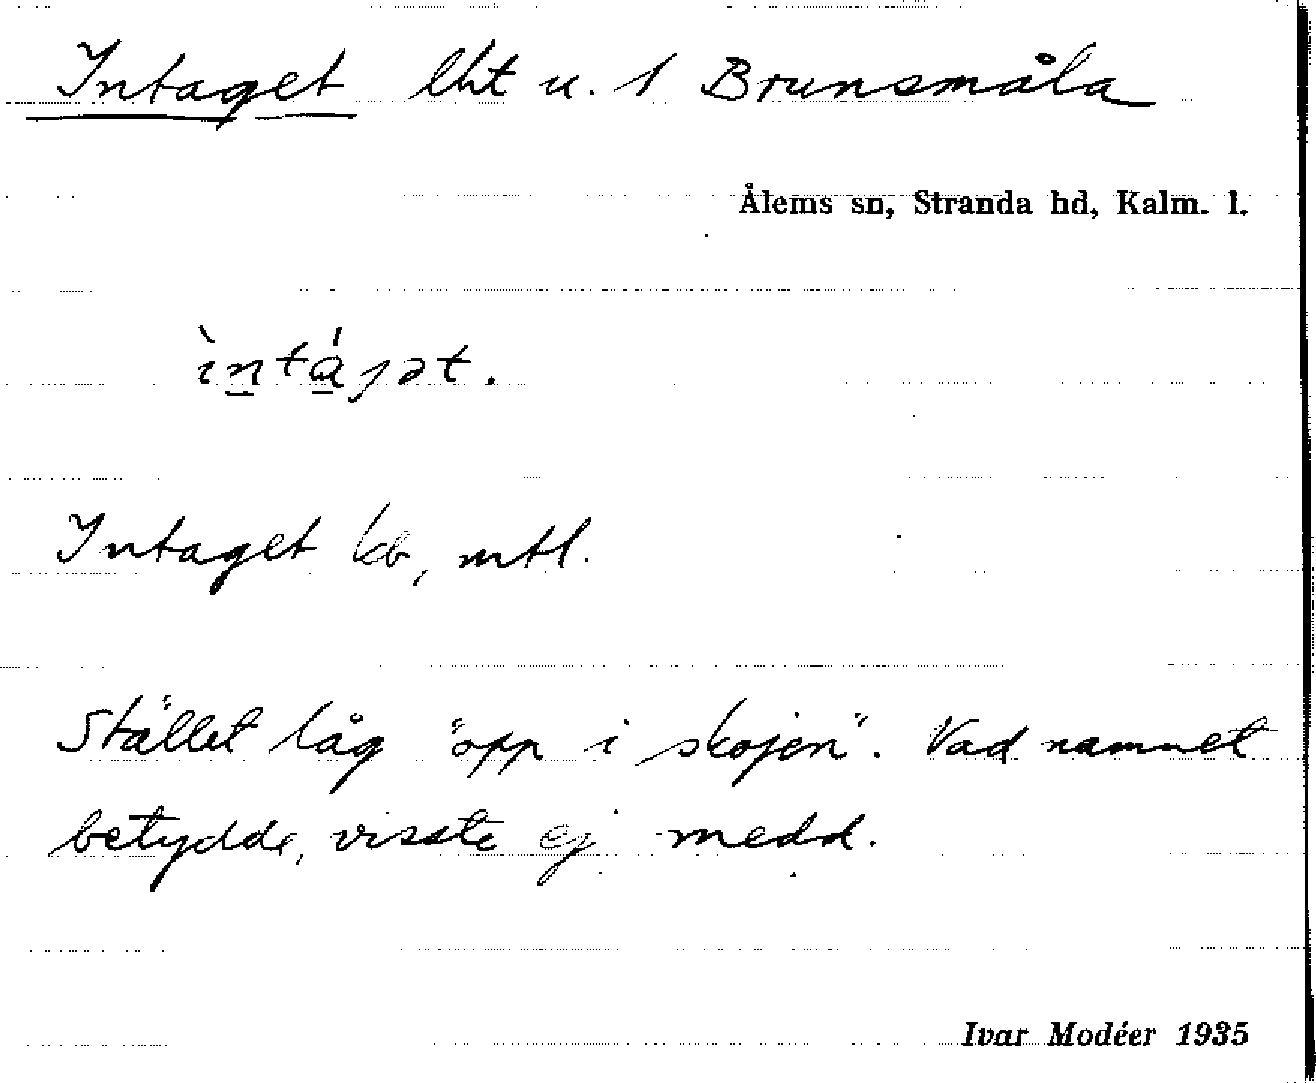 Intaget lht u. 1 Brunsmåla
Ålems sn, Stranda hd, Kalm. l.
ìn̲tá̲jət.
Intaget kb, mtl.
Stället låg "opp i skojen". Vad namnet
betydde, visste ej medd.
Ivar Modéer 1935